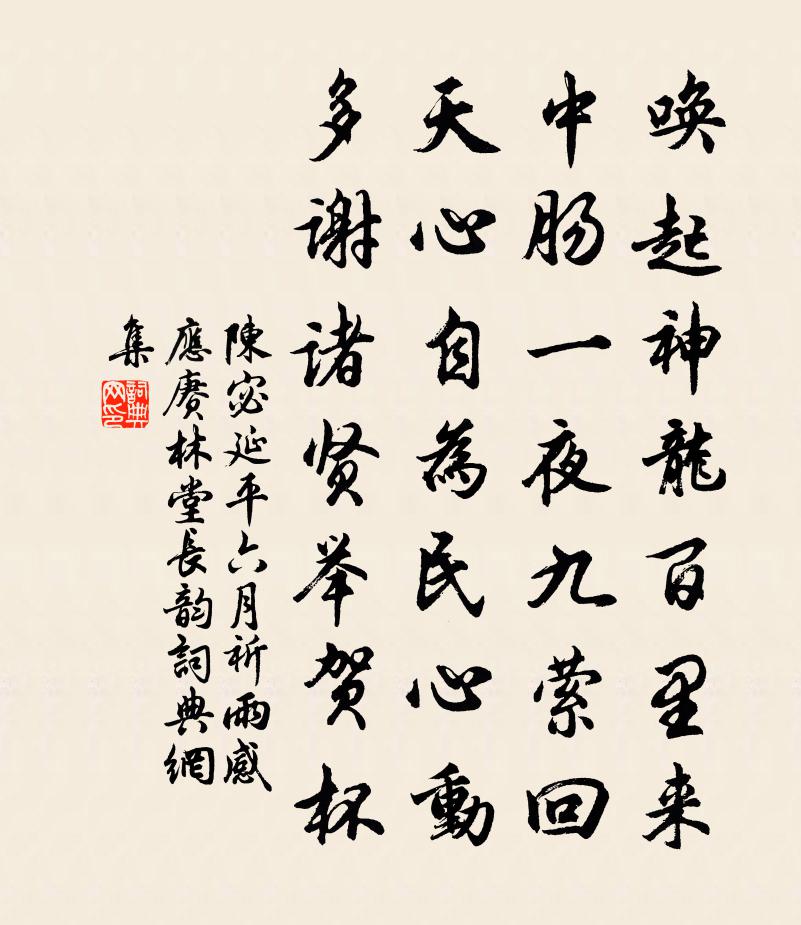 唤起神龍百里来
中肠一夜九萦回
天心自為民心動
多谢诸贤举贺杯
陳宓延平六月祈雨感
應赓林堂長韵詞典網
集
詞典網印